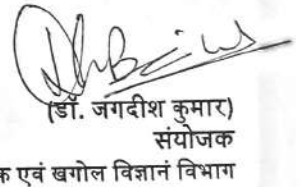 (डॉ. जगदीश कुमार)
संयोजक
एवं खगोल विज्ञानं विभाग